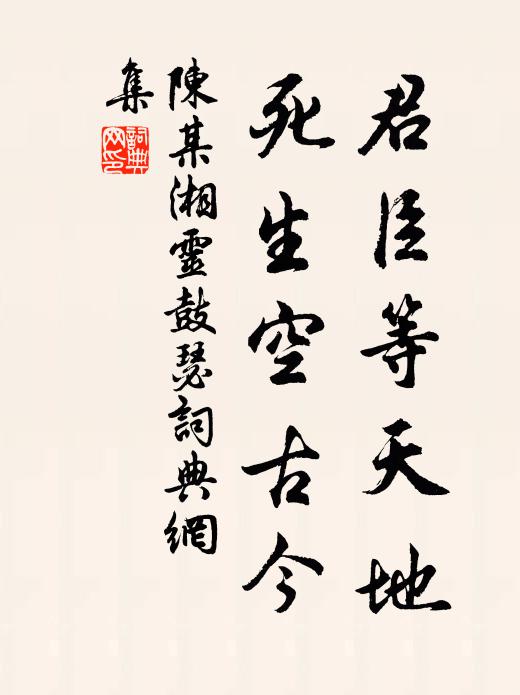 君臣等天地
死生空古今
陳某湘靈鼓瑟詞典網
集
詞典網印